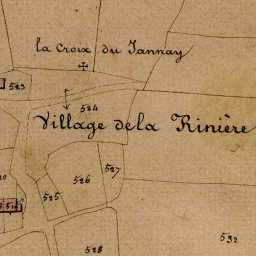 la Croix du Jannay
523
524
Village de la Rinière
527
526
525
528
592